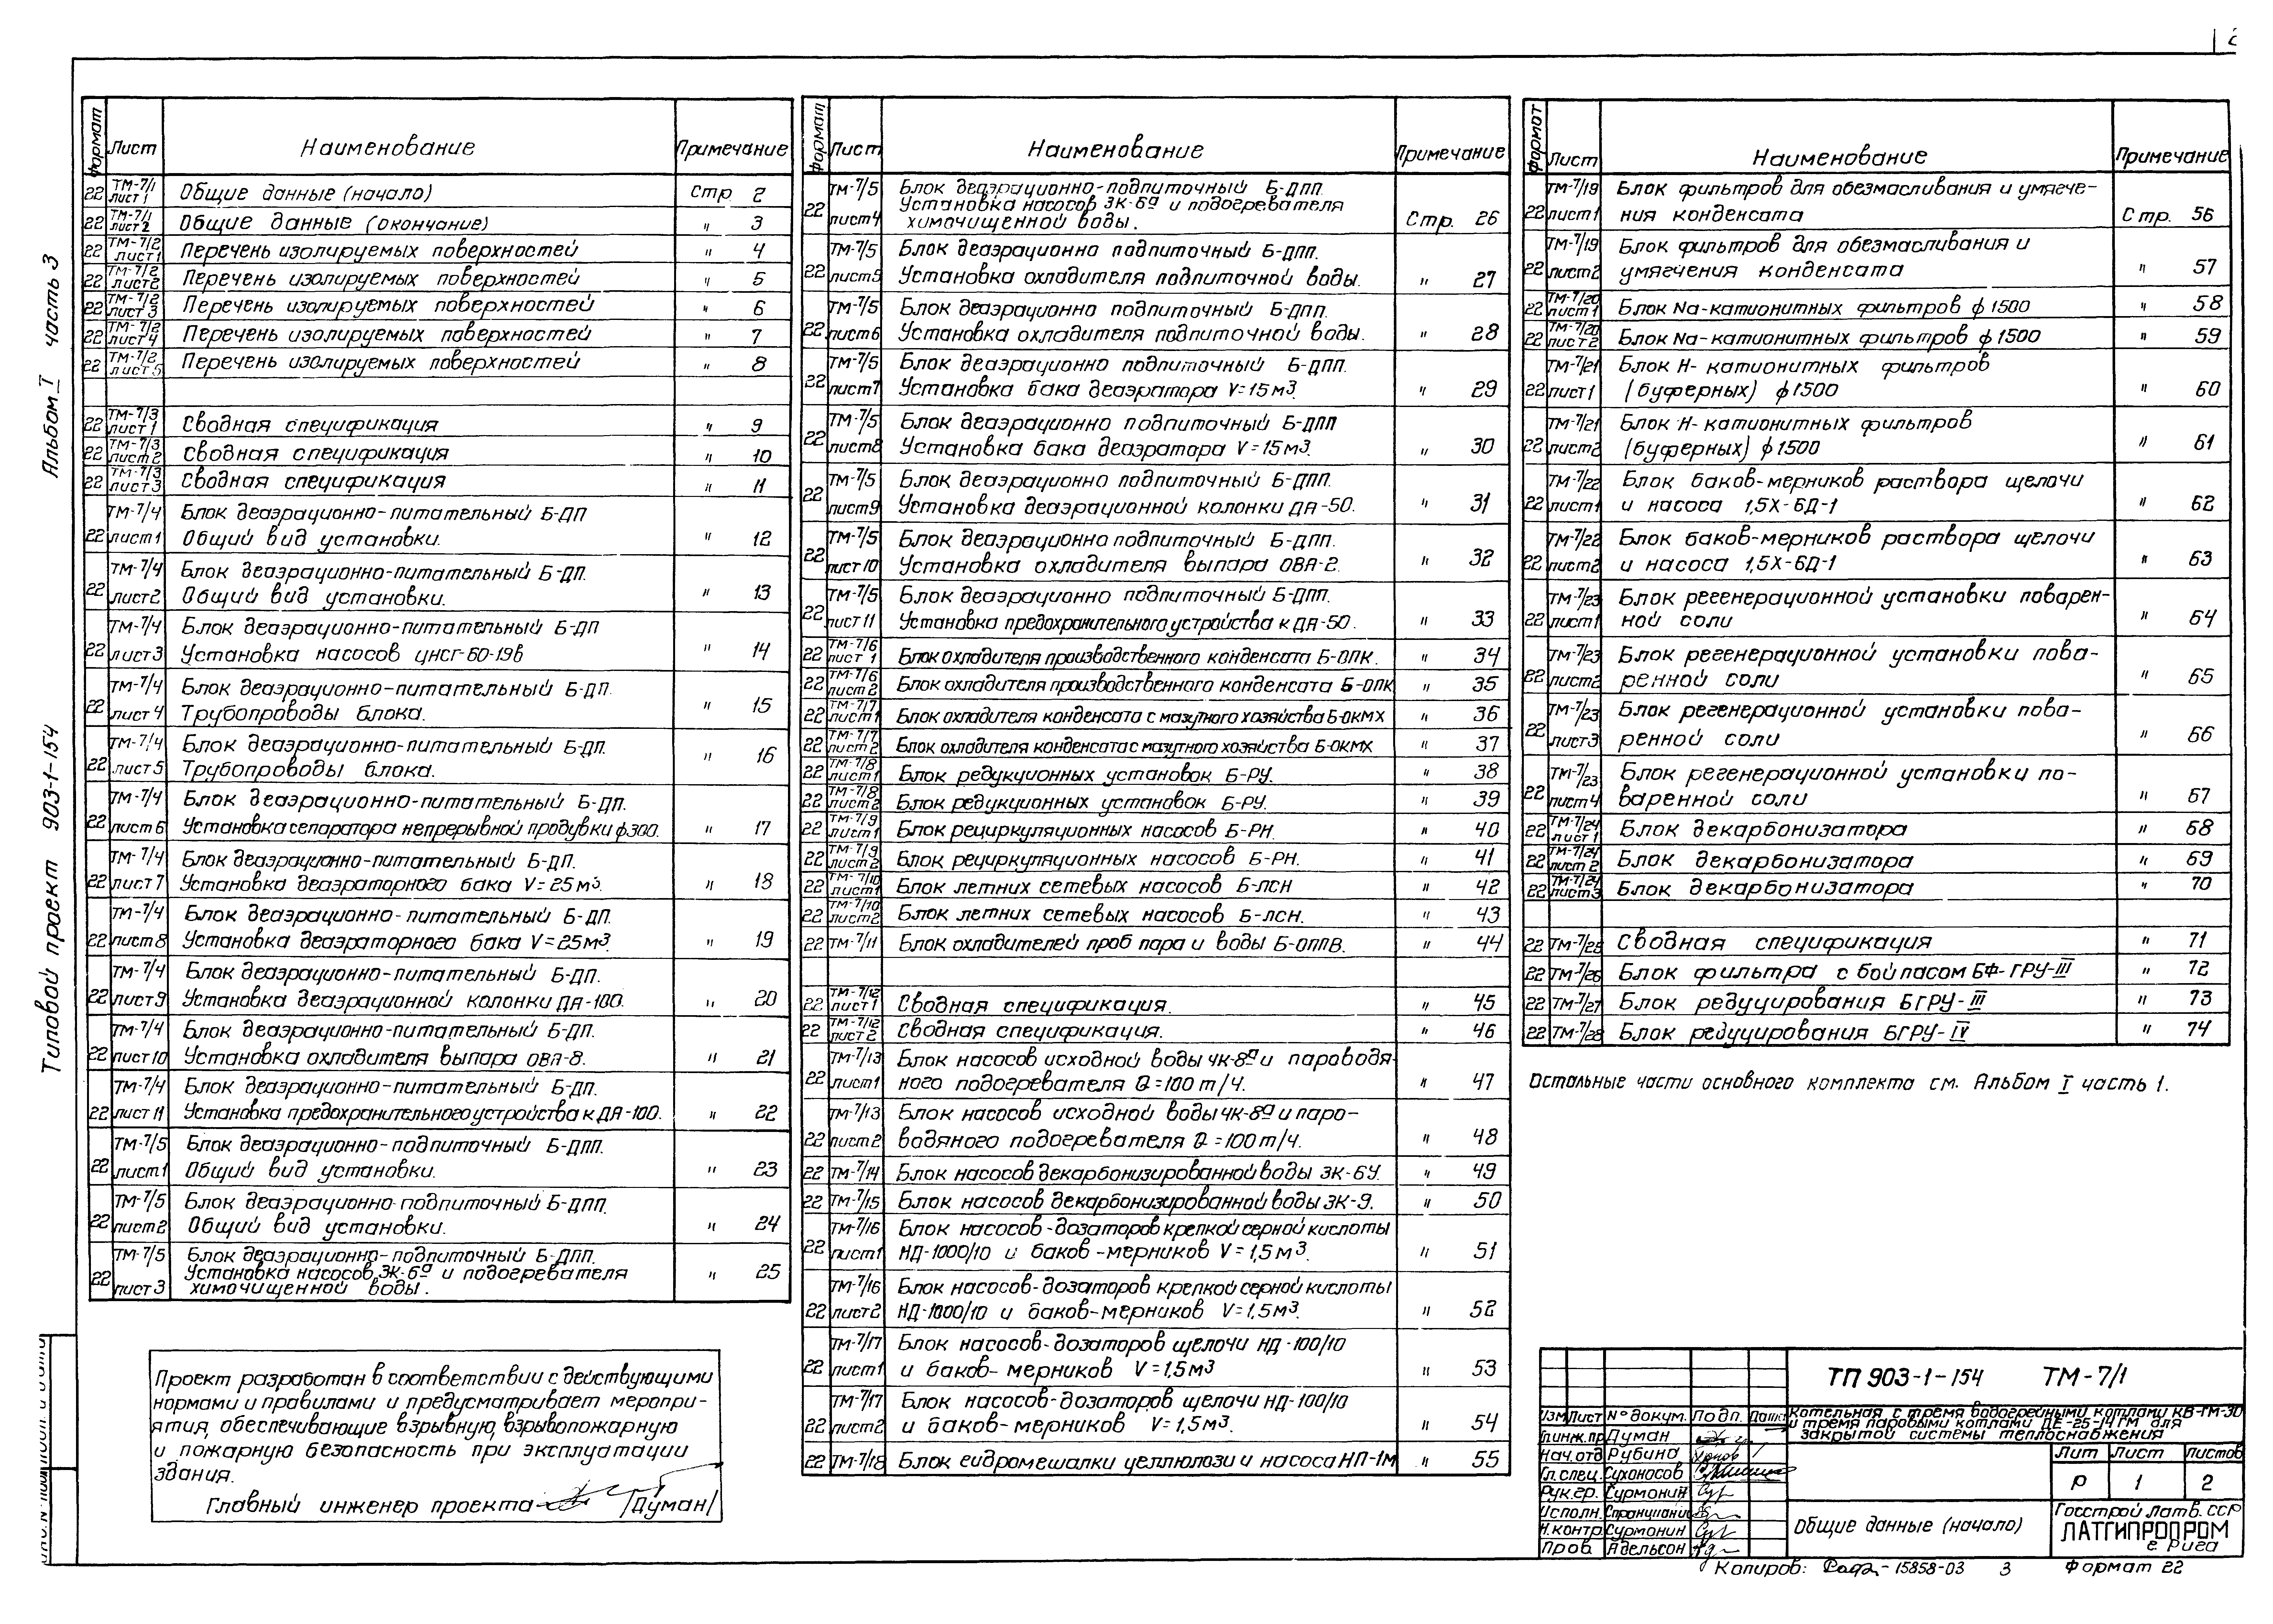 2
Альбом I часть 3
Типовой проект 903-1-154
Формат Лист Наименование Примечание
22 ТМ-7/1 лист 1 Общие данные (начало) стр 2
22 ТМ-7/1 лист 2 Общие данные (окончание) " 3
22 ТМ-7/2 лист 1 Перечень изолируемых поверхностей " 4
22 ТМ-7/2 лист 2 Перечень изолируемых поверхностей " 5
22 ТМ-7/2 лист 3 Перечень изолируемых поверхностей " 6
22 ТМ-7/2 лист 4 Перечень изолируемых поверхностей " 7
22 ТМ-7/2 лист 5 Перечень изолируемых поверхностей " 8
22 ТМ-7/3 лист 1 Сводная спецификация " 9
22 ТМ-7/3 лист 2 Сводная спецификация " 10
22 ТМ-7/3 лист 3 Сводная спецификация " 11
ТМ-7/4 Блок деаэрационно-питательный Б-ДП
22 лист 1 Общий вид установки. " 12
ТМ-7/4 Блок деаэрационно-питательный Б-ДП.
22 лист 2 Общий вид установки. " 13
ТМ-7/4 Блок деаэрационно-питательный Б-ДП
22 лист 3 Установка насосов ЦНСГ-60-198 " 14
ТМ-7/4 Блок деаэрационно-питательный Б-ДП.
22 лист 4 Трубопроводы блока. " 15
ТМ-7/4 Блок деаэрационно-питательный Б-ДП.
22 лист 5 Трубопроводы блока. " 16
ТМ-7/4 Блок деаэрационно-питательный Б-ДП.
22 лист 6 Установка сепаратора непрерывной продувки ф300. " 17
ТМ-7/4 Блок деаэрационно-питательный Б-ДП.
22 лист 7 Установка деаэраторного бака V=25м³. " 18
ТМ-7/4 Блок деаэрационно-питательный Б-ДП.
22 лист 8 Установка деаэраторного бака V=25м³. " 19
ТМ-7/4 Блок деаэрационно-питательный Б-ДП.
22 лист 9 Установка деаэрационной колонки ДА-100. " 20
ТМ-7/4 Блок деаэрационно-питательный Б-ДП.
22 лист 10 Установка охладителя выпара ОВА-8. " 21
ТМ-7/4 Блок деаэрационно-питательный Б-ДП.
22 лист 11 Установка предохранительного устройства к ДА-100. " 22
ТМ-7/5 Блок деаэрационно-подпиточный Б-ДПП.
22 лист 1 Общий вид установки. " 23
ТМ-7/5 Блок деаэрационно-подпиточный Б-ДПП.
22 лист 2 Общий вид установки. " 24
ТМ-7/5 Блок деаэрационно-подпиточный Б-ДПП.
Установка насосов 3К-6а и подогревателя
22 лист 3 химочищенной воды. " 25
Проект разработан в соответствии с действующими
нормами и правилами и предусматривает меропри-
ятия, обеспечивающие взрывную, взрывопожарную
и пожарную безопасность при эксплуатации
здания.
Главный инженер проекта /Думан/
Формат Лист Наименование Примечание
ТМ-7/5 Блок деаэрационно-подпиточный Б-ДПП.
Установка насосов 3К-6а и подогревателя
22 лист 4 химочищенной воды. Стр. 26
ТМ-7/5 Блок деаэрационно подпиточный Б-ДПП.
22 лист 5 Установка охладителя подпиточной воды. " 27
ТМ-7/5 Блок деаэрационно подпиточный Б-ДПП.
22 лист 6 Установка охладителя подпиточной воды. " 28
ТМ-7/5 Блок деаэрационно подпиточный Б-ДПП.
22 лист 7 Установка бака деаэратора V=15м³. " 29
ТМ-7/5 Блок деаэрационно подпиточный Б-ДПП
22 лист 8 Установка бака деаэратора V=15м³. " 30
ТМ-7/5 Блок деаэрационно подпиточный Б-ДПП.
22 лист 9 Установка деаэрационной колонки ДА-50. " 31
ТМ-7/5 Блок деаэрационно подпиточный Б-ДПП.
22 лист 10 Установка охладителя выпара ОВА-2. " 32
ТМ-7/5 Блок деаэрационно подпиточный Б-ДПП.
22 лист 11 Установка предохранительного устройства к ДА-50. " 33
22 ТМ-7/6 лист 1 Блок охладителя производственного конденсата Б-ОПК. " 34
22 ТМ-7/6 лист 2 Блок охладителя производственного конденсата Б-ОПК " 35
22 ТМ-7/7 лист 1 Блок охладителя конденсата с мазутного хозяйства Б-ОКМХ " 36
22 ТМ-7/7 лист 2 Блок охладителя конденсата с мазутного хозяйства Б-ОКМХ " 37
22 ТМ-7/8 лист 1 Блок редукционных установок Б-РУ. " 38
22 ТМ-7/8 лист 2 Блок редукционных установок Б-РУ. " 39
22 ТМ-7/9 лист 1 Блок рециркуляционных насосов Б-РН. " 40
22 ТМ-7/9 лист 2 Блок рециркуляционных насосов Б-РН. " 41
22 ТМ-7/10 лист 1 Блок летних сетевых насосов Б-ЛСН " 42
22 ТМ-7/10 лист 2 Блок летних сетевых насосов Б-ЛСН. " 43
22 ТМ-7/11 Блок охладителей проб пара и воды Б-ОППВ. " 44
22 ТМ-7/12 лист 1 Сводная спецификация. " 45
22 ТМ-7/12 лист 2 Сводная спецификация. " 46
ТМ-7/13 Блок насосов исходной воды 4К-8а и пароводя-
22 лист 1 ного подогревателя Q=100 т/ч. " 47
ТМ-7/13 Блок насосов исходной воды 4К-8а и паро-
22 лист 2 водяного подогревателя Q=100 т/ч. " 48
22 ТМ-7/14 Блок насосов декарбонизированной воды 3К-6У. " 49
22 ТМ-7/15 Блок насосов декарбонизированной воды 3К-9. " 50
ТМ-7/16 Блок насосов-дозаторов крепкой серной кислоты
22 лист 1 НД-1000/10 и баков-мерников V=1,5м³. " 51
ТМ-7/16 Блок насосов-дозаторов крепкой серной кислоты
22 лист 2 НД-1000/10 и баков-мерников V=1,5м³. " 52
ТМ-7/17 Блок насосов-дозаторов щелочи НД-100/10
22 лист 1 и баков-мерников V=1,5м³ " 53
ТМ-7/17 Блок насосов-дозаторов щелочи НД-100/10
22 лист 2 и баков-мерников V=1,5м³. " 54
22 ТМ-7/18 Блок гидромешалки целлюлозы и насоса НП-1М " 55
Формат Лист Наименование Примечание
ТМ-7/19 Блок фильтров для обезмасливания и умягче-
22 лист 1 ния конденсата Стр. 56
ТМ-7/19 Блок фильтров для обезмасливания и
22 лист 2 умягчения конденсата " 57
22 ТМ-7/20 лист 1 Блок Na-катионитных фильтров ф1500 " 58
22 ТМ-7/20 лист 2 Блок Na-катионитных фильтров ф1500 " 59
ТМ-7/21 Блок Н-катионитных фильтров
22 лист 1 (буферных) ф1500 " 60
ТМ-7/21 Блок Н-катионитных фильтров
22 лист 2 (буферных) ф1500 " 61
ТМ-7/22 Блок баков-мерников раствора щелочи
22 лист 1 и насоса 1,5Х-6Д-1 " 62
ТМ-7/22 Блок баков-мерников раствора щелочи
22 лист 2 и насоса 1,5Х-6Д-1 " 63
ТМ-7/23 Блок регенерационной установки поварен-
22 лист 1 ной соли " 64
ТМ-7/23 Блок регенерационной установки пова-
22 лист 2 ренной соли " 65
ТМ-7/23 Блок регенерационной установки пова-
22 лист 3 ренной соли " 66
ТМ-7/23 Блок регенерационной установки по-
22 лист 4 варенной соли " 67
22 ТМ-7/24 лист 1 Блок декарбонизатора " 68
22 ТМ-7/24 лист 2 Блок декарбонизатора " 69
22 ТМ-7/24 лист 3 Блок декарбонизатора " 70
22 ТМ-7/25 Сводная спецификация " 71
22 ТМ-7/26 Блок фильтра с бойпасом БФ-ГРУ-III " 72
22 ТМ-7/27 Блок редуцирования БГРУ-III " 73
22 ТМ-7/28 Блок редуцирования БГРУ-IV " 74
Остальные части основного комплекта см. Альбом I часть 1.
ТП 903-1-154 ТМ-7/1
Котельная с тремя водогрейными котлами КВ-ГМ-30
и тремя паровыми котлами ДЕ-25-14ГМ для
закрытой системы теплоснабжения
Изм Лист N° докум. Подп. Дата
Гл.инж.пр Думан
Нач.отд Рубина
Гл.спец. Сухоносов
Рук.гр. Сурмонин
Исполн.
Н.контр Сурмонин
Пров. Адельсон
Лит Лист Листов
Р 1 2
Общие данные (начало)
Госстрой Латв.ССР
ЛАТГИПРОПРОМ
г. Рига
Копиров: 15858-03 3 Формат 22